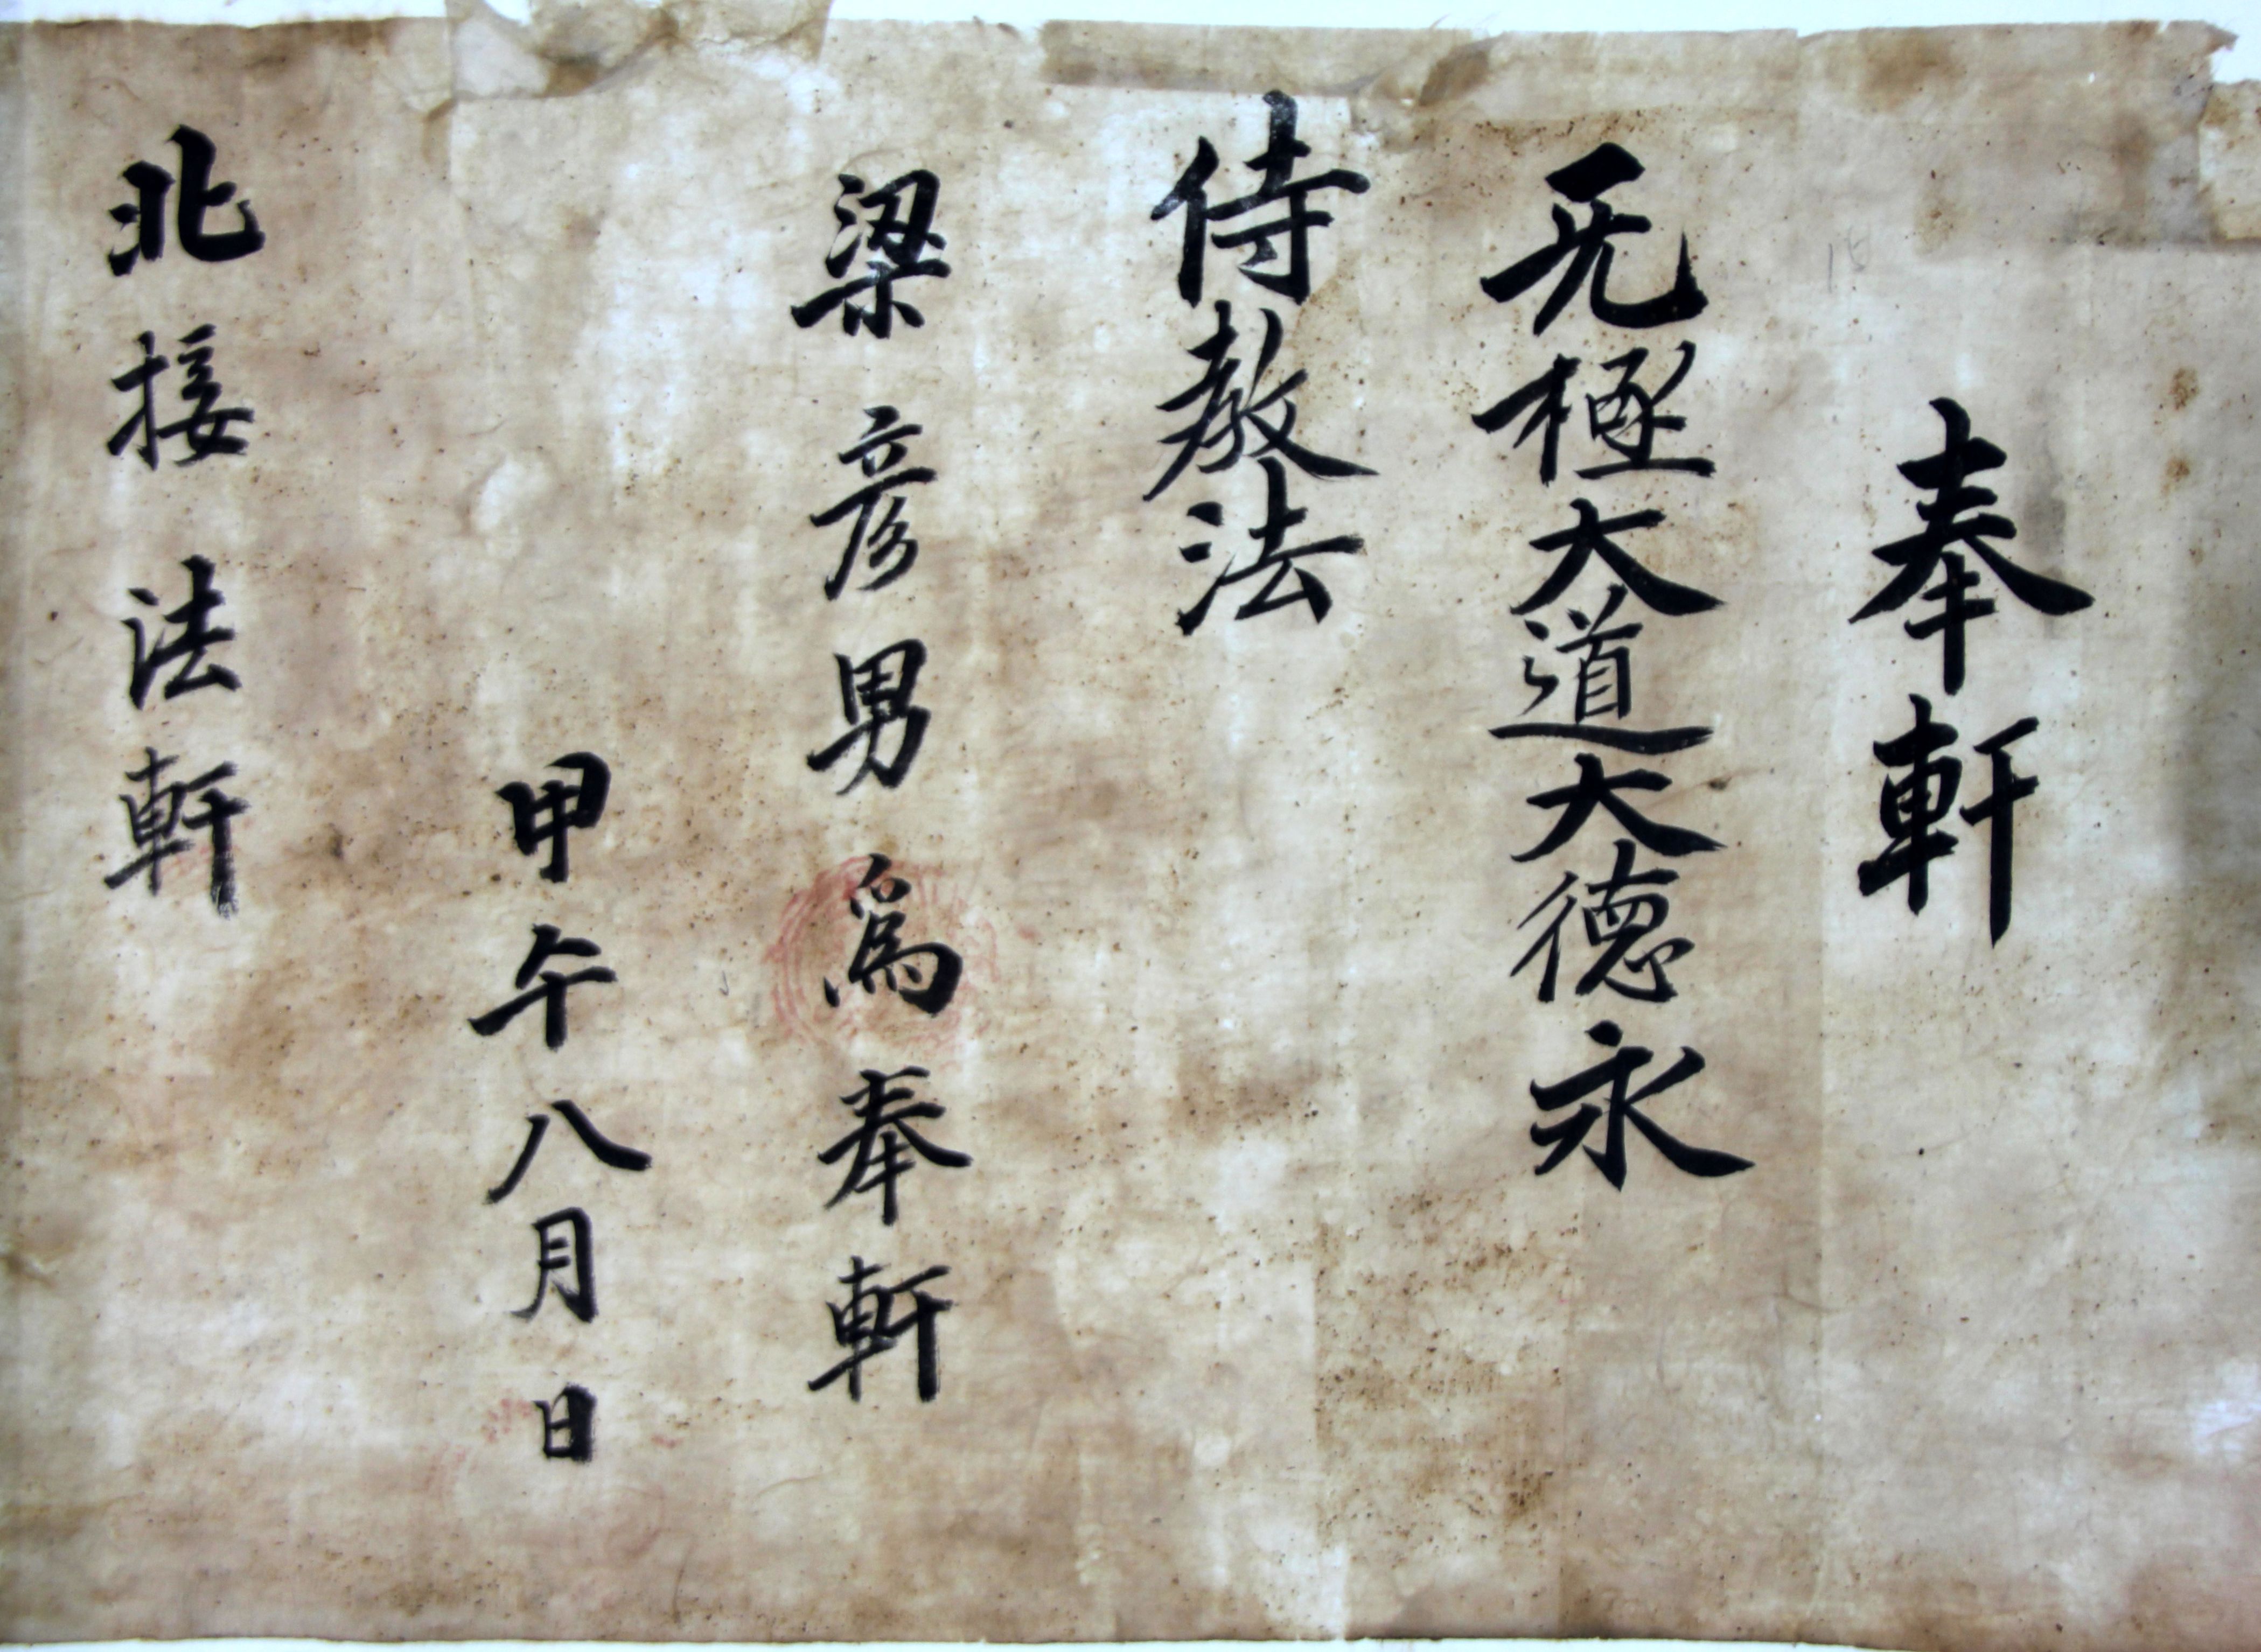 奉軒
无極大道大德永
侍教法
梁彦男爲奉軒
甲午八月 日
北接法軒